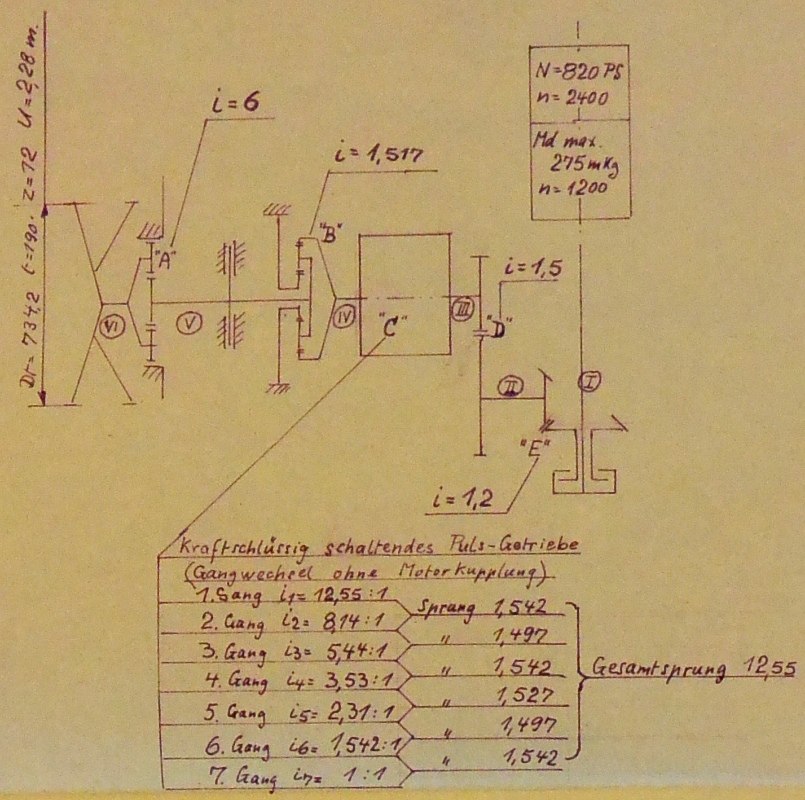 Dt = 734,2 t=190. Z=72 U=2,28 m.
i=6
i=1,517
N=820 PS
n=2400
Md max.
275 mKg
n=1200
"A"
"B"
i=1,5
VI
V
IV
"C"
III
"D"
II
I
"E"
i=1,2
Kraftschlüssig schaltendes Puls-Getriebe
(Gangwechsel ohne Motorkupplung)
1. Gang i1= 12,55:1
Sprung 1,542
2. Gang i2= 8,14:1
" 1,497
3. Gang i3= 5,44:1
" 1,542
4. Gang i4= 3,53:1
" 1,527
5. Gang i5= 2,31:1
" 1,497
6. Gang i6= 1,542:1
" 1,542
7. Gang i7= 1:1
Gesamtsprung 12,55